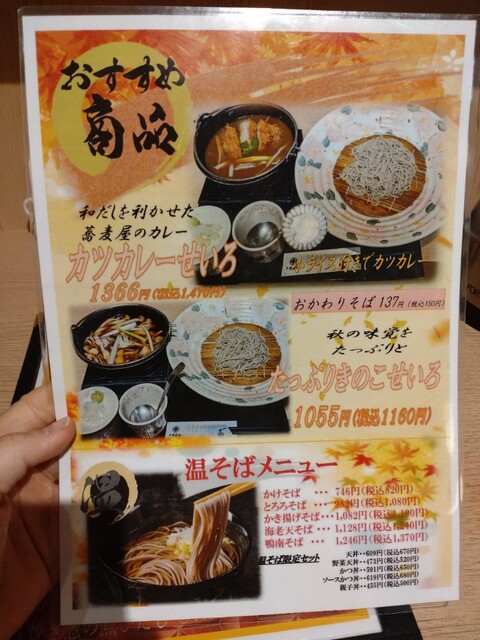 おすすめ
商品
和だしを利かせた
蕎麦屋のカレー
カツカレーせいろ
小ライス付きでカツカレー
1366円(税込1,470円)
おかわりそば 137円(税込150円)
秋の味覚を
たっぷりと
たっぷりきのこせいろ
1055円(税込1160円)
温
温そばメニュー
かけそば ・・・ 746円(税込820円)
とろろそば ・・・ 982円(税込1,080円)
かき揚げそば・・・1,082円(税込1,190円)
海老天そば ・・・1,128円(税込1,240円)
鴨南そば ・・・1,246円(税込1,370円)
温そば限定セット
天丼・・609円(税込670円)
野菜天丼・・473円(税込520円)
かつ丼・・591円(税込650円)
ソースかつ丼・・619円(税込680円)
親子丼・・455円(税込500円)